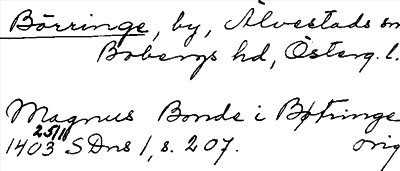 Börringe, by, Älvestads sn
Bobergs hd, Österg. l.
Magnus Bonde i Bøtringe
25/11
1403 SDns 1, s. 207. orig